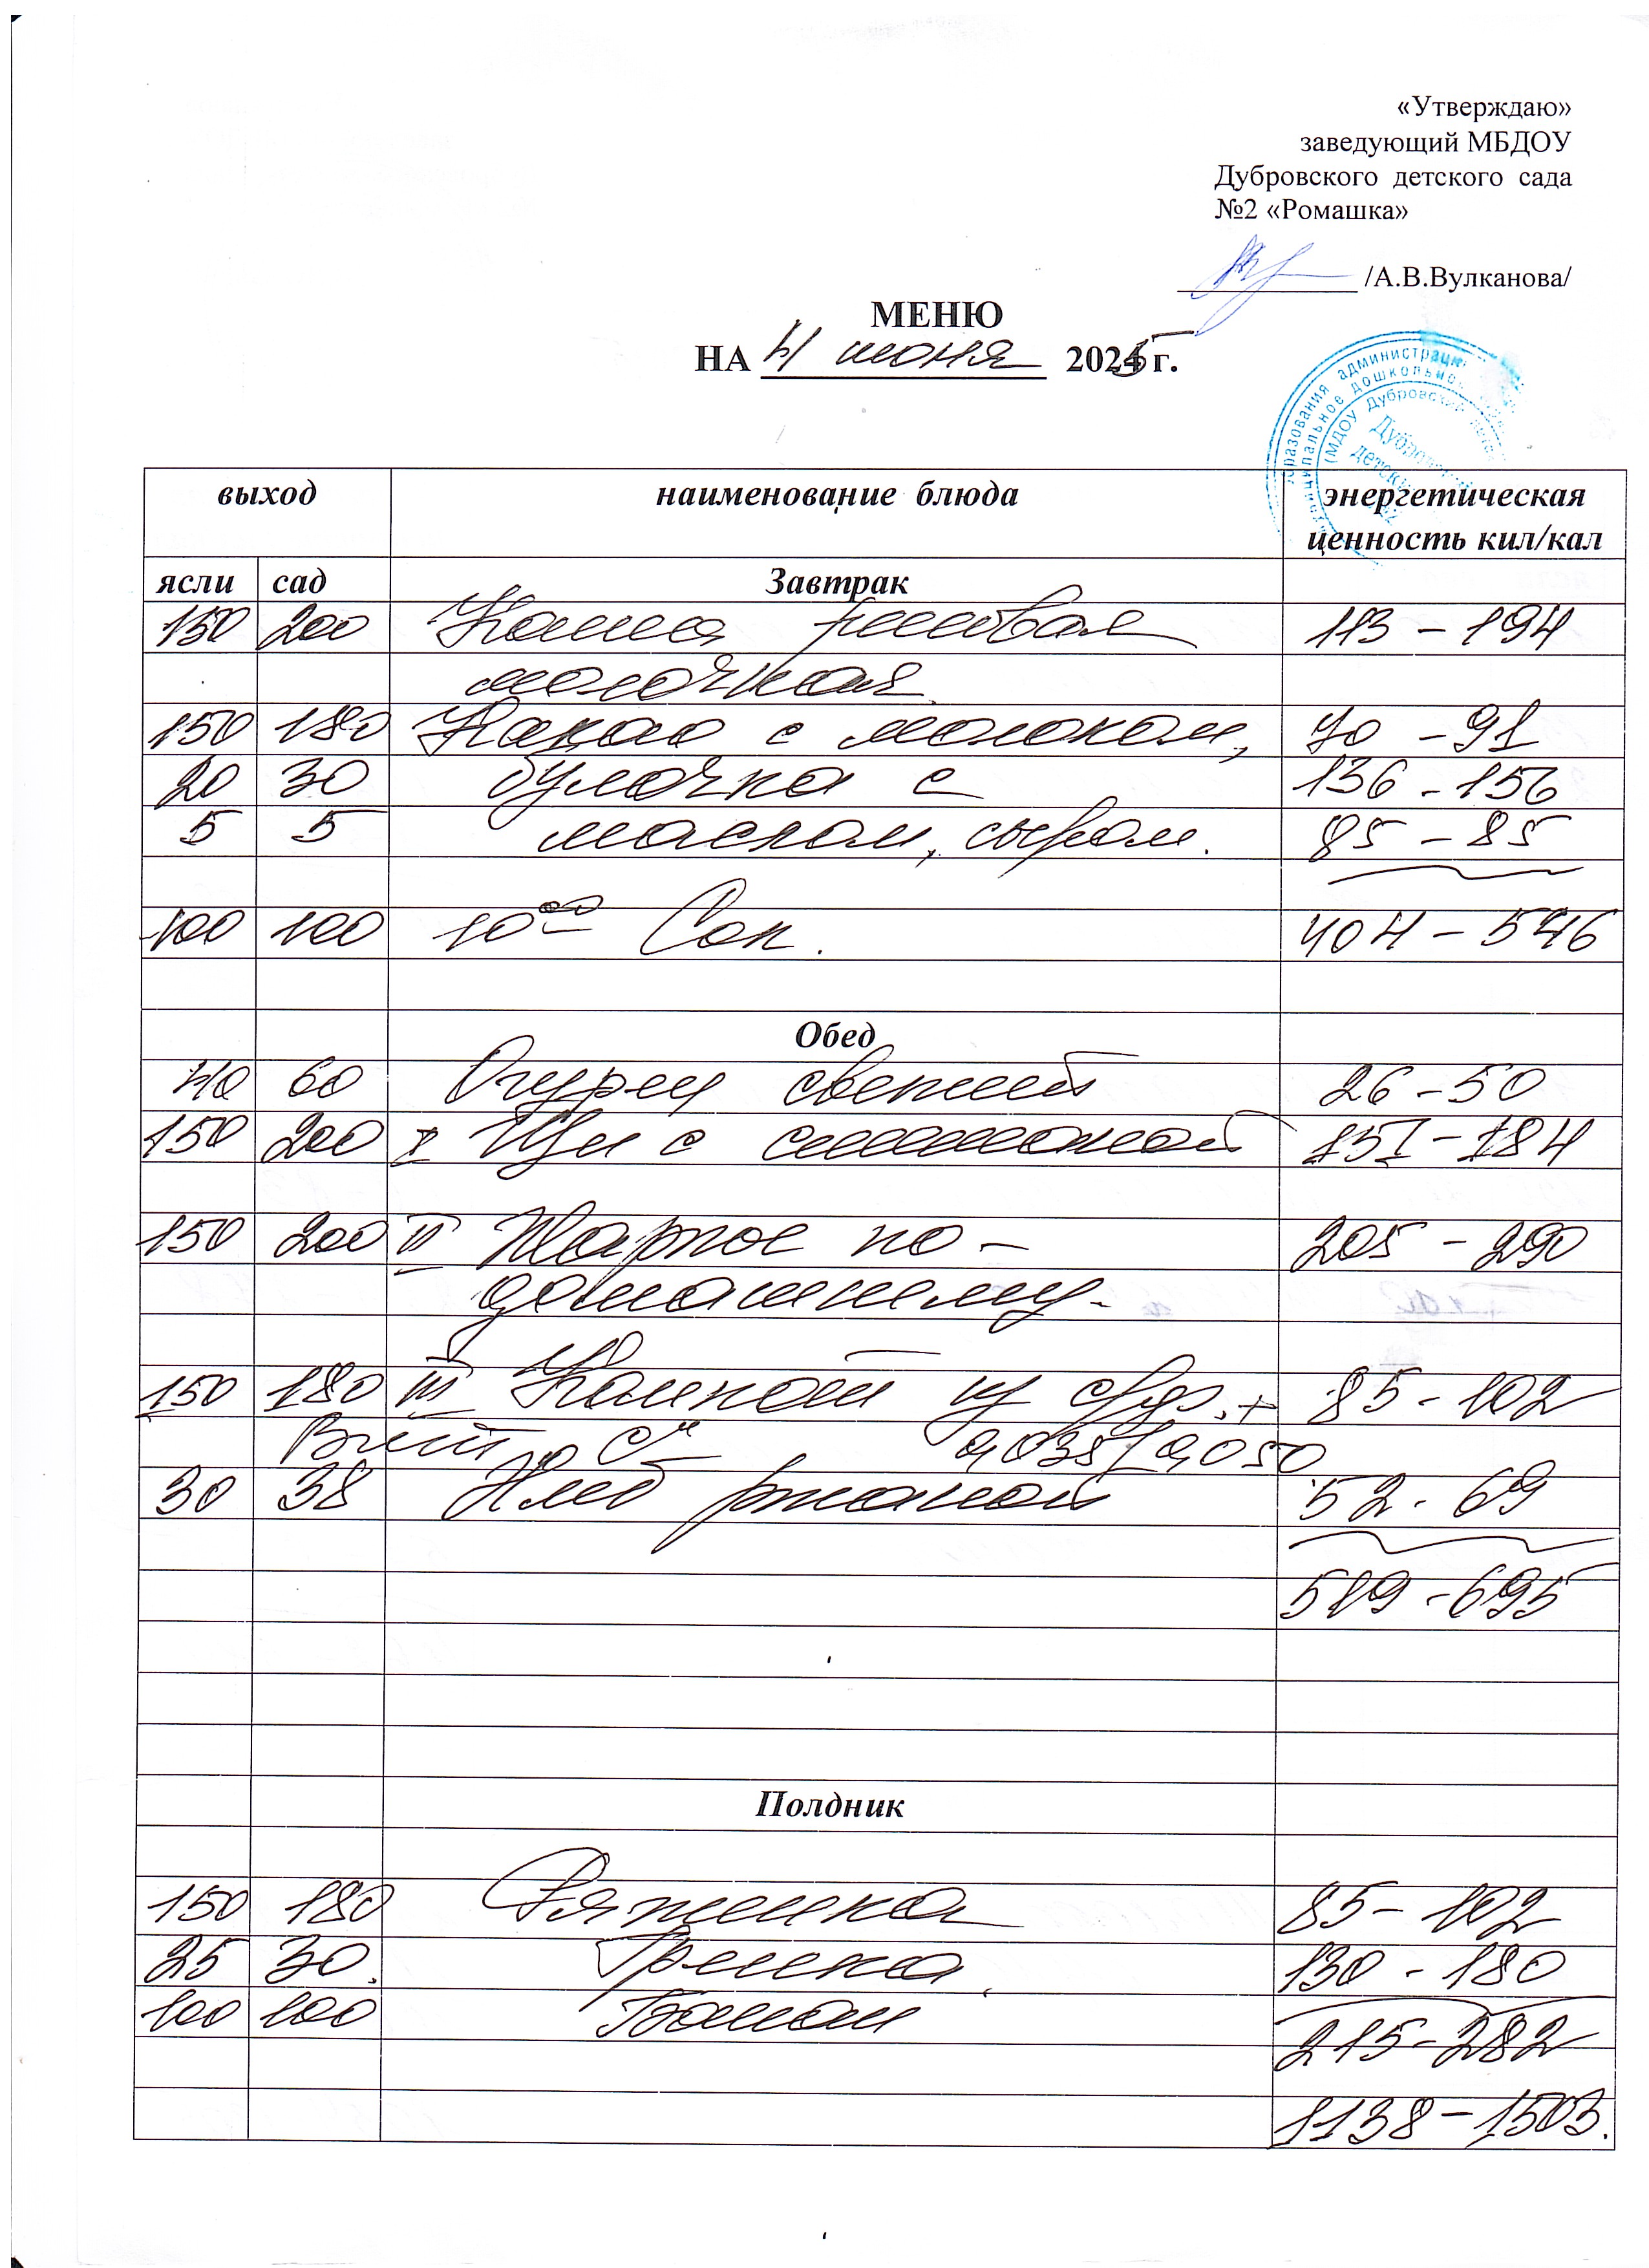 «Утверждаю»
заведующий МБДОУ
Дубровского детского сада
№2 «Ромашка»
/А.В.Вулканова/
МЕНЮ
НА 4 июня 2025 г.
выход наименование блюда энергетическая
ценность кил/кал
ясли сад Завтрак
150 200 Каша рисовая 113 - 194
молочная.
150 180 Какао с молоком, 70 - 91
20 30 булочка с 136 - 156
5 5 маслом, сыром. 85 - 85
100 100 10⁰⁰ Сок. 404 - 526
Обед
40 60 Огурец свежий 26 - 50
150 200 I Щи с сметаной 151 - 184
150 200 II Жаркое по- 205 - 290
домашнему.
150 180 III Компот из с/ф. + 85 - 102
Вит „С" 0,035/0,050
30 38 Хлеб ржаной 52 - 69
519 - 695
Полдник
150 180 Ряженка 85 - 102
25 30. Гренка 130 - 180
100 100 Банан 215 - 282
1138 - 1503.